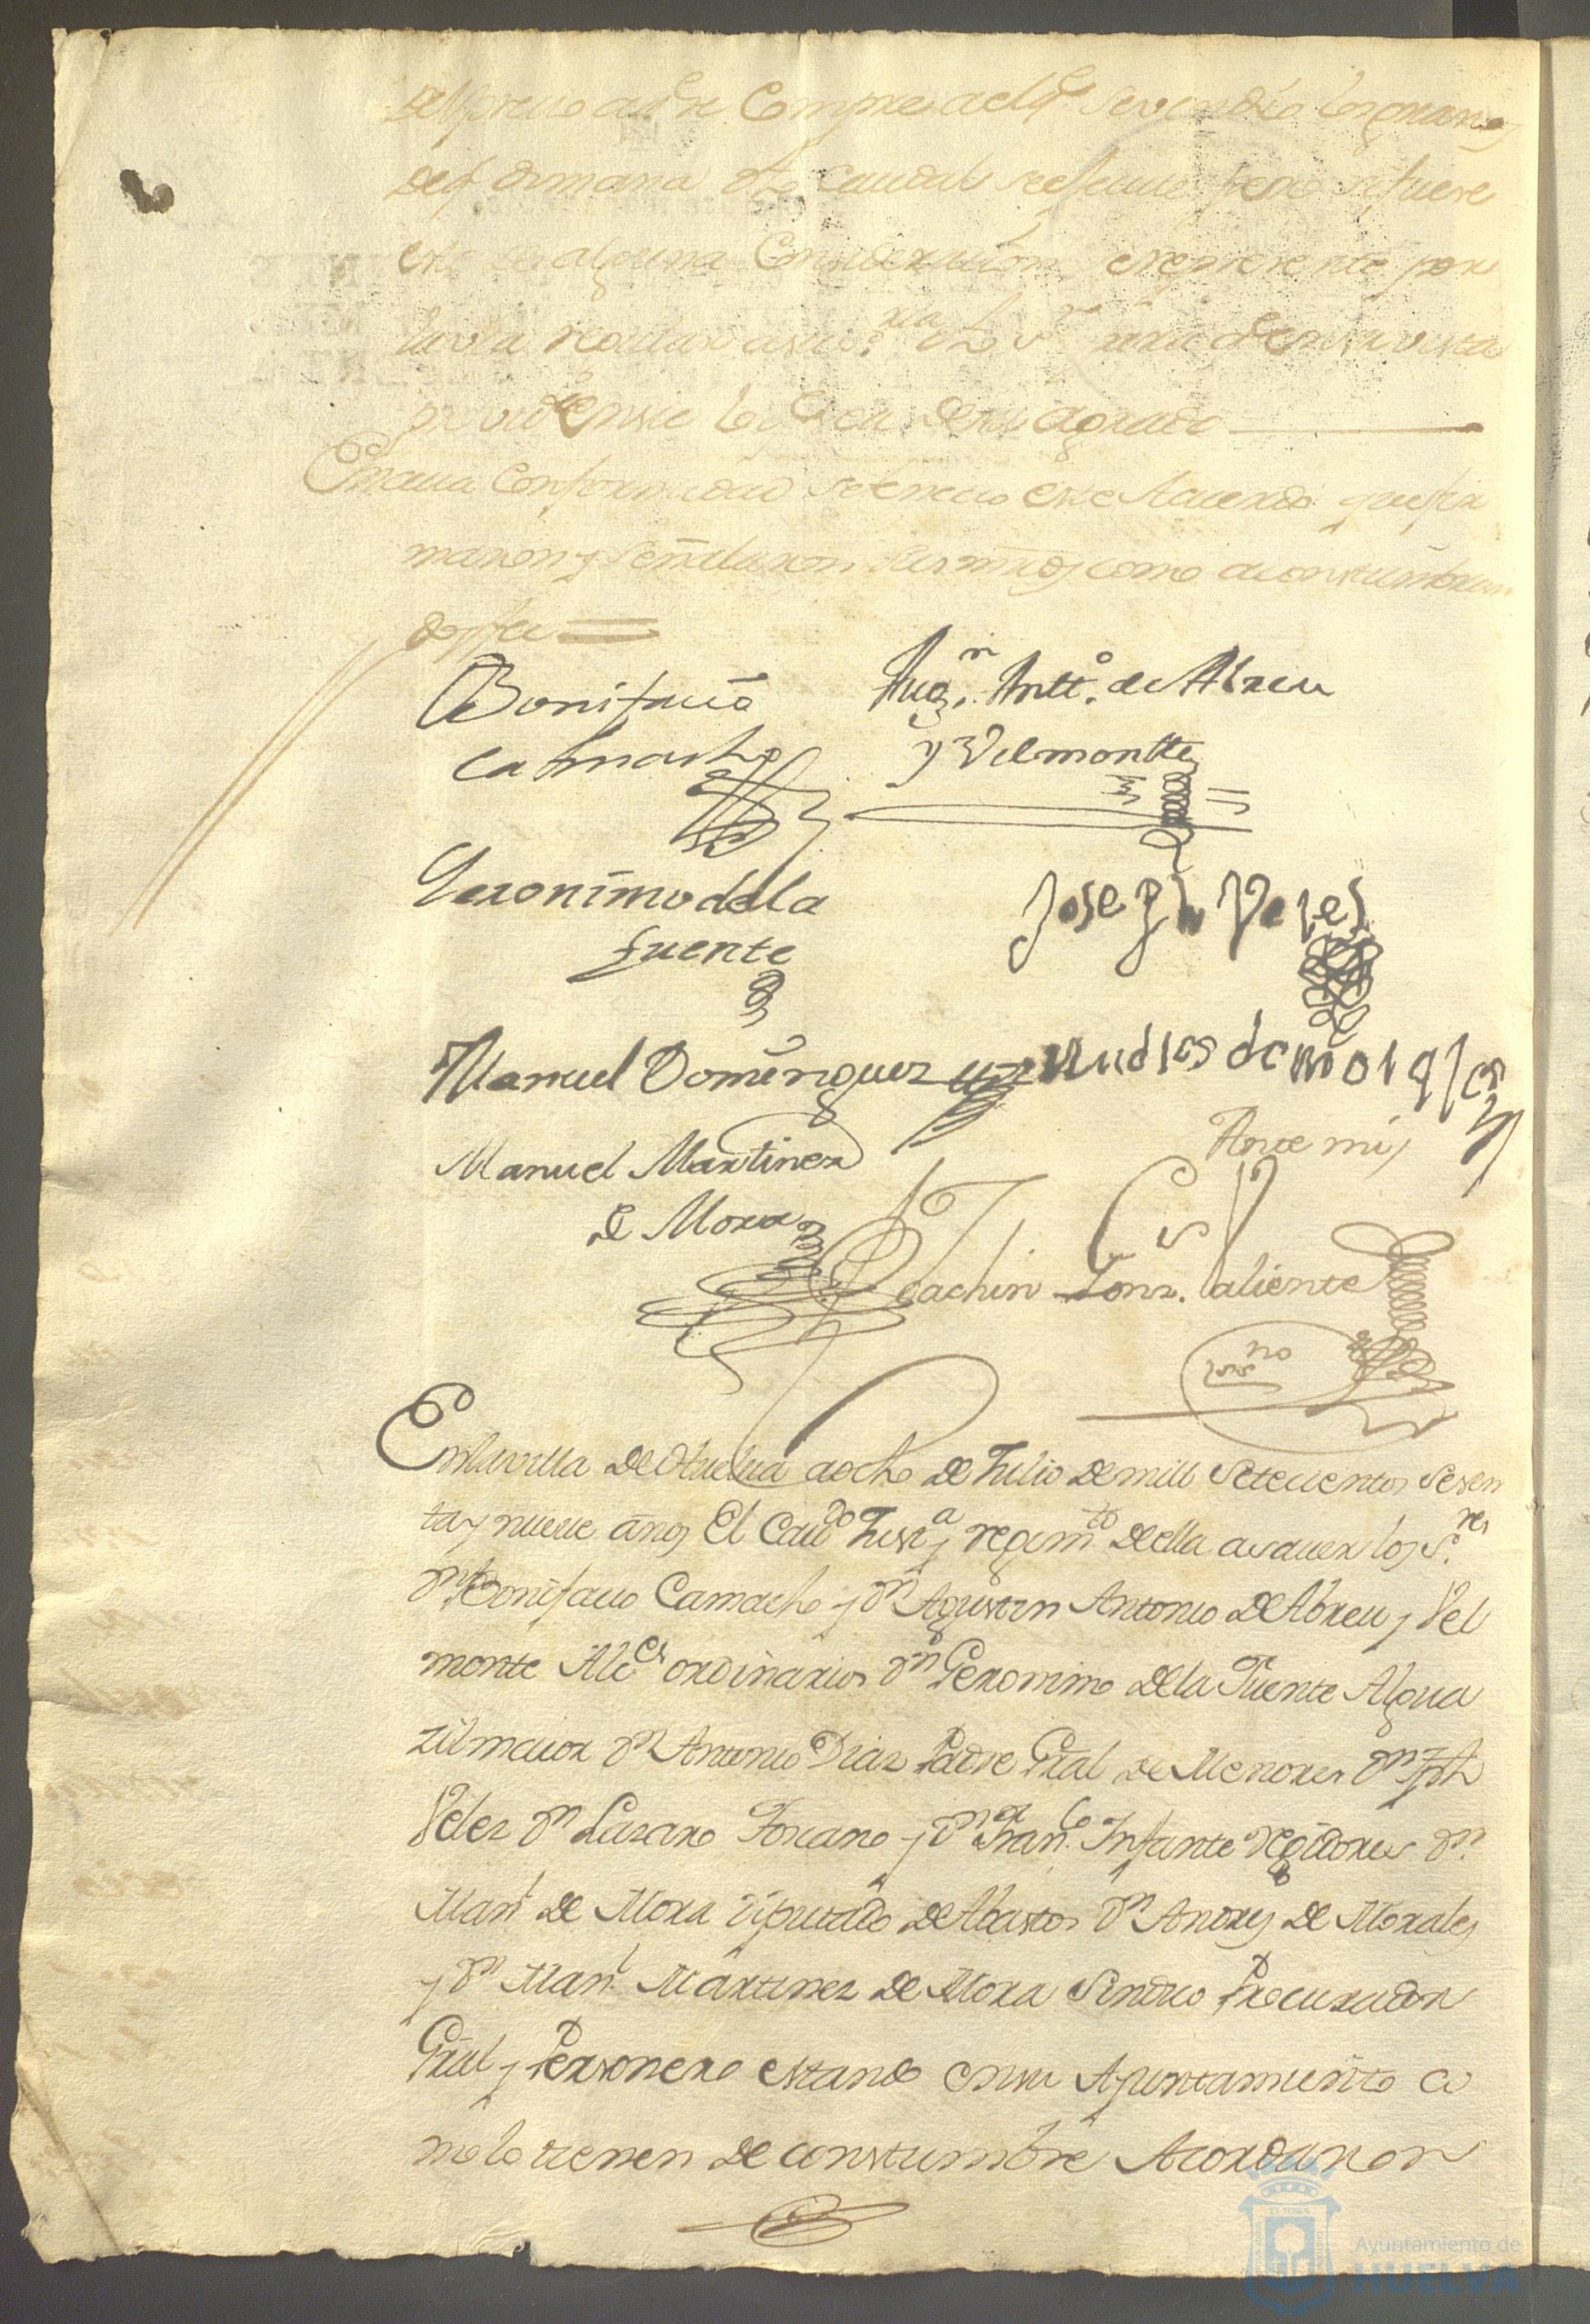 del precio a que Compre del qe se vendio los granos
de
caudal pero si fuere
esto de alguna Consideracion se represente por
la via regular a su sria
providensie lo que sea de su agrado
En cuia Conformidad se hecio este Acuerdo que fir
maron y señalaron sus mrds como acostumbran
doy fee =
Bonifacio Camacho
Augn. Antto. de Abreu
y Velmontte
Geronimo de la
fuente
Joseph Veles
Manuel Domingues
Andres de morales
Manuel Martinez
de Mora
Ante mi
Joachin Gonz. Valiente
ssno
En la villa de Huelva a ocho de Julio de mill setecientos sesen
ta y nueve años El Cavdo Justa y regimto de ella a saver los Sres
Dn Bonifacio Camacho y Dn Agustin Antonio de Abreu y Vel
monte Alces ordinarios Dn Geronimo de la Fuente Algua
zil maior Dn Antonio Diaz Padre Gral de Menores Dn Jph
Velez Dn Lazaro Toscano y Dn Franco Infante regidores Dn
Manl de Mora Diputado de Abastos Dn Andres de Morales
y Dn Manl Martinez de Mora Sindico Procurador
Gral y Personero estando en su Ayuntamiento co
mo lo tienen de constumbre Acordaron
Ayuntamiento de
HUELVA